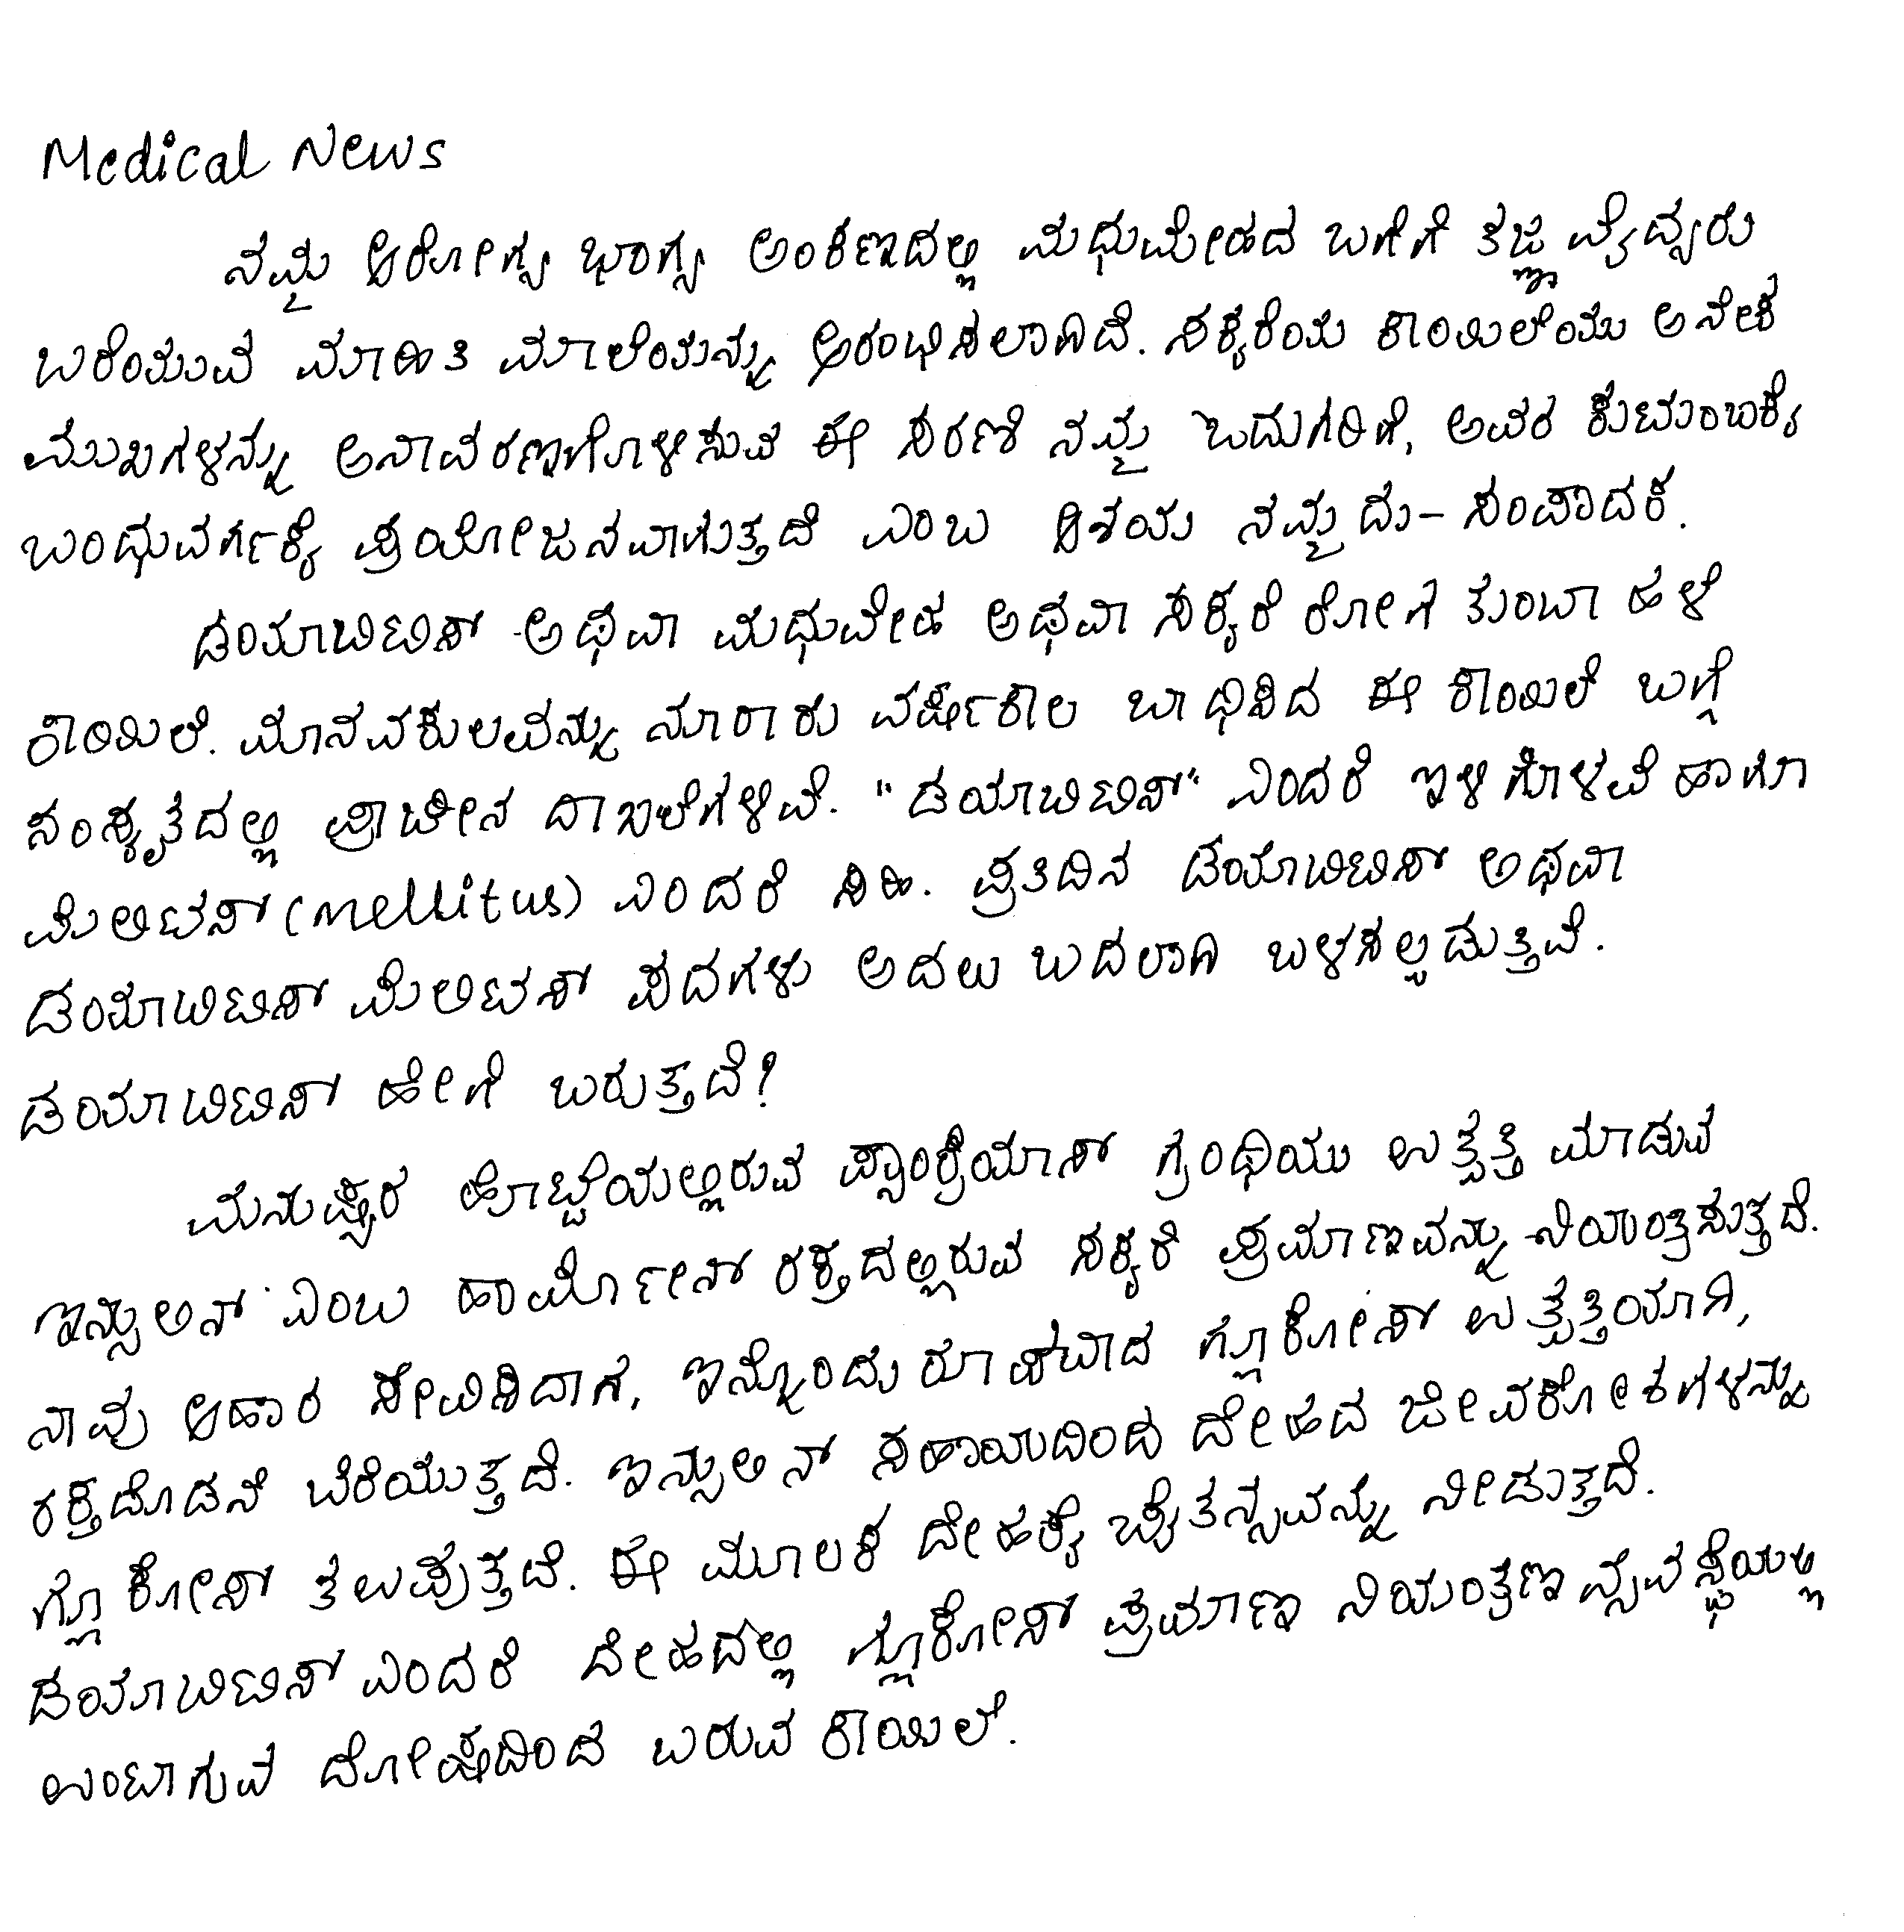 Medical News
ನಮ್ಮ ಆರೋಗ್ಯ ಭಾಗ್ಯ ಅಂಕಣದಲ್ಲಿ ಮಧುಮೇಹದ ಬಗೆಗೆ ತಜ್ಞ ವೈದ್ಯರು
ಬರೆಯುವ ಮಾಹಿತಿ ಮಾಲೆಯನ್ನು ಆರಂಭಿಸಲಾಗಿದೆ. ಸಕ್ಕರೆಯ ಕಾಯಿಲೆಯು ಅನೇಕ
ಮುಖಗಳನ್ನು ಅನಾವರಣಗೊಳಿಸುವ ಈ ಸರಣಿ ನಮ್ಮ ಓದುಗರಿಗೆ, ಅವರ ಕುಟುಂಬಕ್ಕೆ
ಬಂಧುವರ್ಗಕ್ಕೆ ಪ್ರಯೋಜನವಾಗುತ್ತದೆ ಎಂಬ ಆಶಯ ನಮ್ಮದು - ಸಂಪಾದಕ.
ಡಯಾಬಿಟಿಸ್ ಅಥವಾ ಮಧುಮೇಹ ಅಥವಾ ಸಕ್ಕರೆ ರೋಗ ತುಂಬಾ ಹಳೆ
ಕಾಯಿಲೆ. ಮಾನವಕುಲವನ್ನು ನೂರಾರು ವರ್ಷಕಾಲ ಬಾಧಿಸಿದ ಈ ಕಾಯಿಲೆ ಬಗ್ಗೆ
ಸಂಸ್ಕೃತದಲ್ಲಿ ಪ್ರಾಚೀನ ದಾಖಲೆಗಳಿವೆ. "ಡಯಾಬಿಟಿಸ್" ಎಂದರೆ ಇಳಿಗೊಳವೆ ಹಾಗೂ
ಮೆಲಿಟಸ್ (mellitus) ಎಂದರೆ ಸಿಹಿ. ಪ್ರತಿದಿನ ಡಯಾಬಿಟಿಸ್ ಅಥವಾ
ಡಯಾಬಿಟಿಸ್ ಮೆಲಿಟಸ್ ಪದಗಳು ಅದಲು ಬದಲಾಗಿ ಬಳಸಲ್ಪಡುತ್ತಿವೆ.
ಡಯಾಬಿಟಿಸ್ ಹೇಗೆ ಬರುತ್ತದೆ?
ಮನುಷ್ಯರ ಹೊಟ್ಟೆಯಲ್ಲಿರುವ ಪ್ಯಾಂಕ್ರಿಯಾಸ್ ಗ್ರಂಥಿಯು ಉತ್ಪತ್ತಿ ಮಾಡುವ
ಇನ್ಸುಲಿನ್ ಎಂಬ ಹಾರ್ಮೋನ್ ರಕ್ತದಲ್ಲಿರುವ ಸಕ್ಕರೆ ಪ್ರಮಾಣವನ್ನು ನಿಯಂತ್ರಿಸುತ್ತದೆ.
ನಾವು ಆಹಾರ ಸೇವಿಸಿದಾಗ, ಇನ್ನೊಂದು ರೂಪವಾದ ಗ್ಲೂಕೋಸ್ ಉತ್ಪತ್ತಿಯಾಗಿ,
ರಕ್ತದೊಡನೆ ಬೆರೆಯುತ್ತದೆ. ಇನ್ಸುಲಿನ್ ಸಹಾಯದಿಂದ ದೇಹದ ಜೀವಕೋಶಗಳನ್ನು
ಗ್ಲೂಕೋಸ್ ತಲುಪುತ್ತದೆ. ಈ ಮೂಲಕ ದೇಹಕ್ಕೆ ಚೈತನ್ಯವನ್ನು ನೀಡುತ್ತದೆ.
ಡಯಾಬಿಟಿಸ್ ಎಂದರೆ ದೇಹದಲ್ಲಿ ಗ್ಲೂಕೋಸ್ ಪ್ರಮಾಣ ನಿಯಂತ್ರಣ ವ್ಯವಸ್ಥೆಯಲ್ಲಿ
ಉಂಟಾಗುವ ದೋಷದಿಂದ ಬರುವ ಕಾಯಿಲೆ.